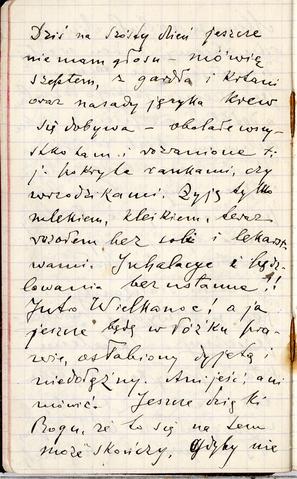 Dziś na szósty dzień jeszcze
nie mam głosu – mówię
szeptem, z gardła i krtani
oraz nasady języka krew
się dobywa – obolałe wszy-
stko tam i rozranione i
pokryte rankami, czy
wrzodzikami. Żyję tylko
mlekiem, kleikiem, teraz
rosołem bez soli i lekarst-
wami. Inhalacje i
bez ustanne!!
Jutro Wielkanoc! a ja
jeszcze będę w łóżku pra-
wie, osłabiony dyjetą i
niedołężny. Ani jeść, ani
mówić. Jeszcze dzięki
Bogu, że to się na tem
może skończy, gdyby nie